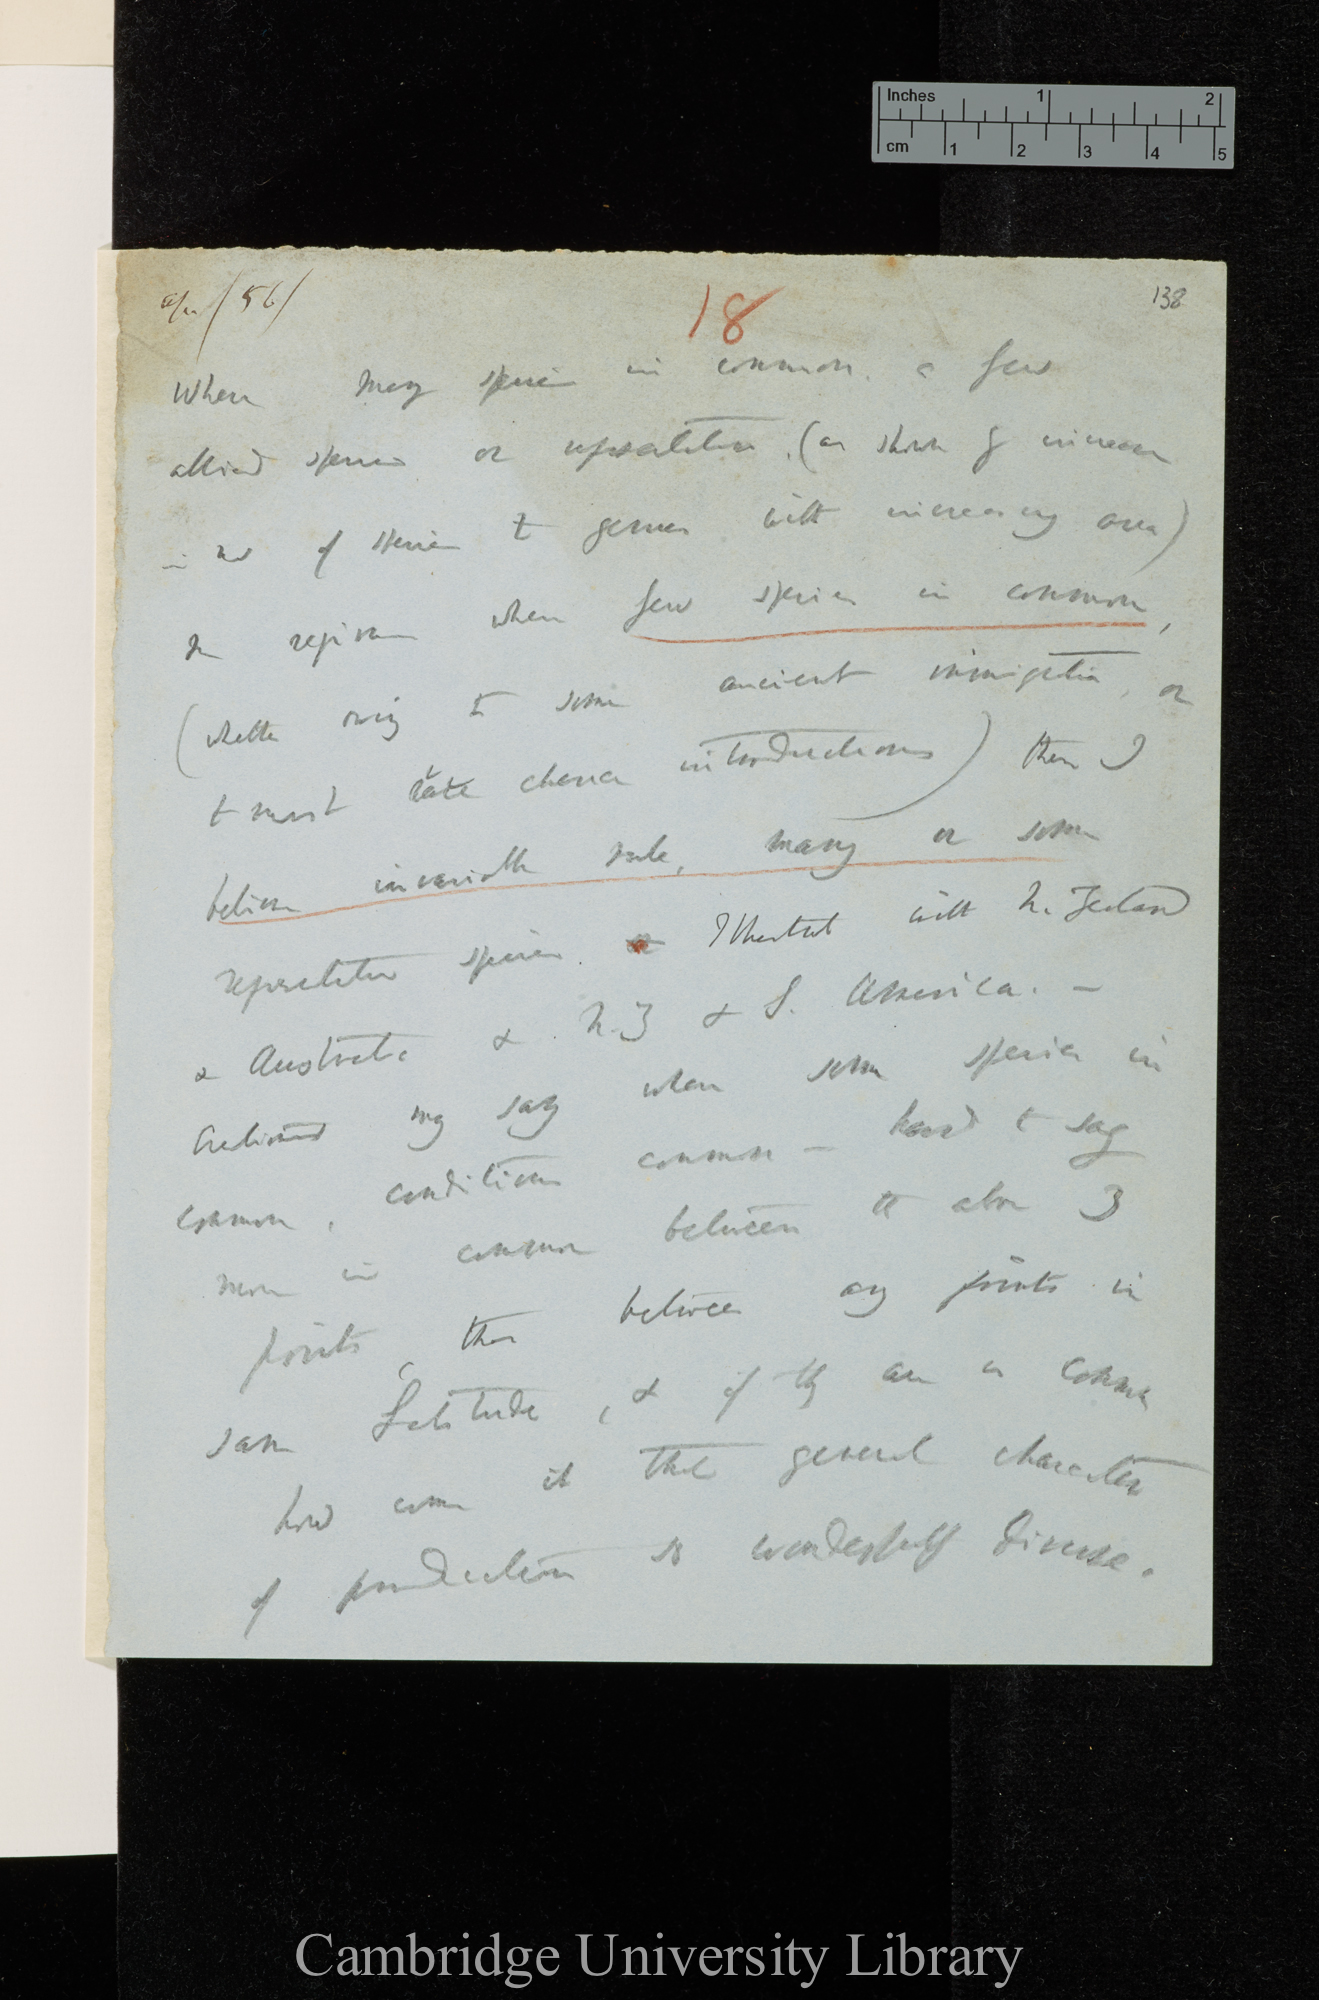 Inches 1 2
cm 1 2 3 4 5
/56/
18
138
When many species in common, a few
allied species or representative, (as shown by increase
in no of species to genus with increasing area)
In regions when few species in common,
(whether owing to some ancient immigration, or
to most rare chance introductions) then I
believe invariable rule, many or some
representative species. Illustrate with N. Zealand
& Australia & N.Z & S. America. —
Creationist may say when some species in
common, conditions common — hard to say
more in common between the above 3
points, than between any points in
same Latitude, & if they are in common
how comes it that general character
of production is wonderfully diverse.
Cambridge University Library